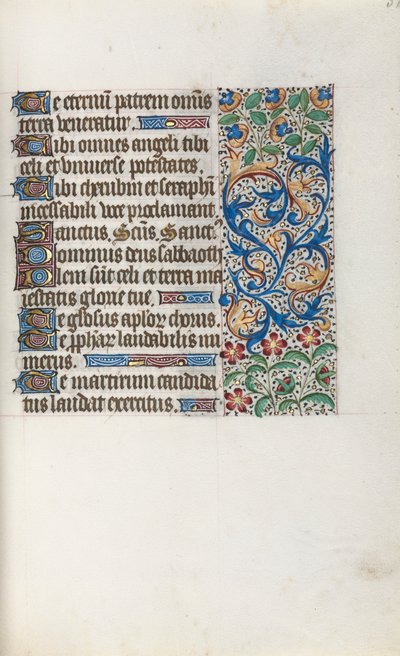 Te eternū patrem om̄is
terra veneratur.
Tibi omnes angeli tibi
celi et vniuerse potestates.
Tibi cherubin et seraphī
incessabili voce proclamant
Sanctus. Sc̄us Sanct.
Dominus deus sabbaoth
Pleni sūt celi et terra ma
iestatis glorie tue.
Te gl̄osus apl̄or chorus.
Te ꝓphar̄ laudabilis nu
merus.
Te martirum candida
tus laudat exercitus.